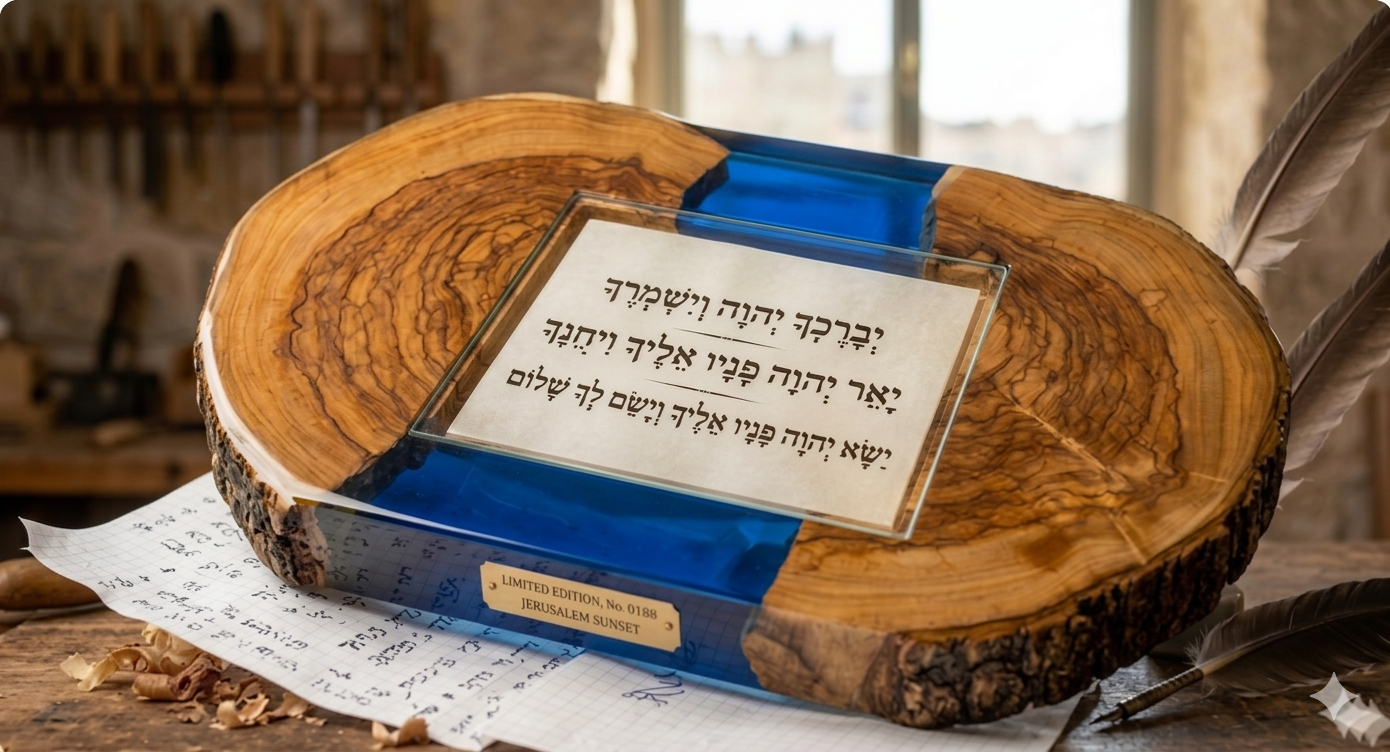 יְבָרֶכְךָ יְהוָה וְיִשְׁמְרֶךָ
יָאֵר יְהוָה פָּנָיו אֵלֶיךָ וִיחֻנֶּךָּ
יִשָּׂא יְהוָה פָּנָיו אֵלֶיךָ וְיָשֵׂם לְךָ שָׁלוֹם
LIMITED EDITION, No. 0188
JERUSALEM SUNSET